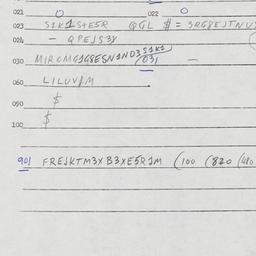 021 0 022 0
023 S1K1S+E5R QGL $ = 3RG8EJTNU
024 - QPEJS3Y
030 MIROMG1G8ESN1ND3S1K1 (031 —
060 LILUV1M
090 $
100 $
901 FREJKTM3XB3XE5R1M (100 (820 (480